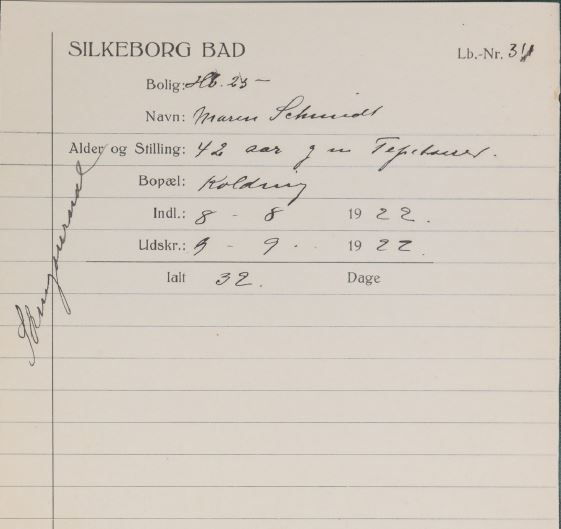 SILKEBORG BAD
Lb.-Nr. 31
Bolig: Hb. 25 -
Navn: Maren Schmidt
Alder og Stilling: 42 aar g m Tapetserer.
Bopæl: Kolding
Indl.: 8 - 8 1922.
Udskr.: 9 - 1922.
Ialt 32. Dage